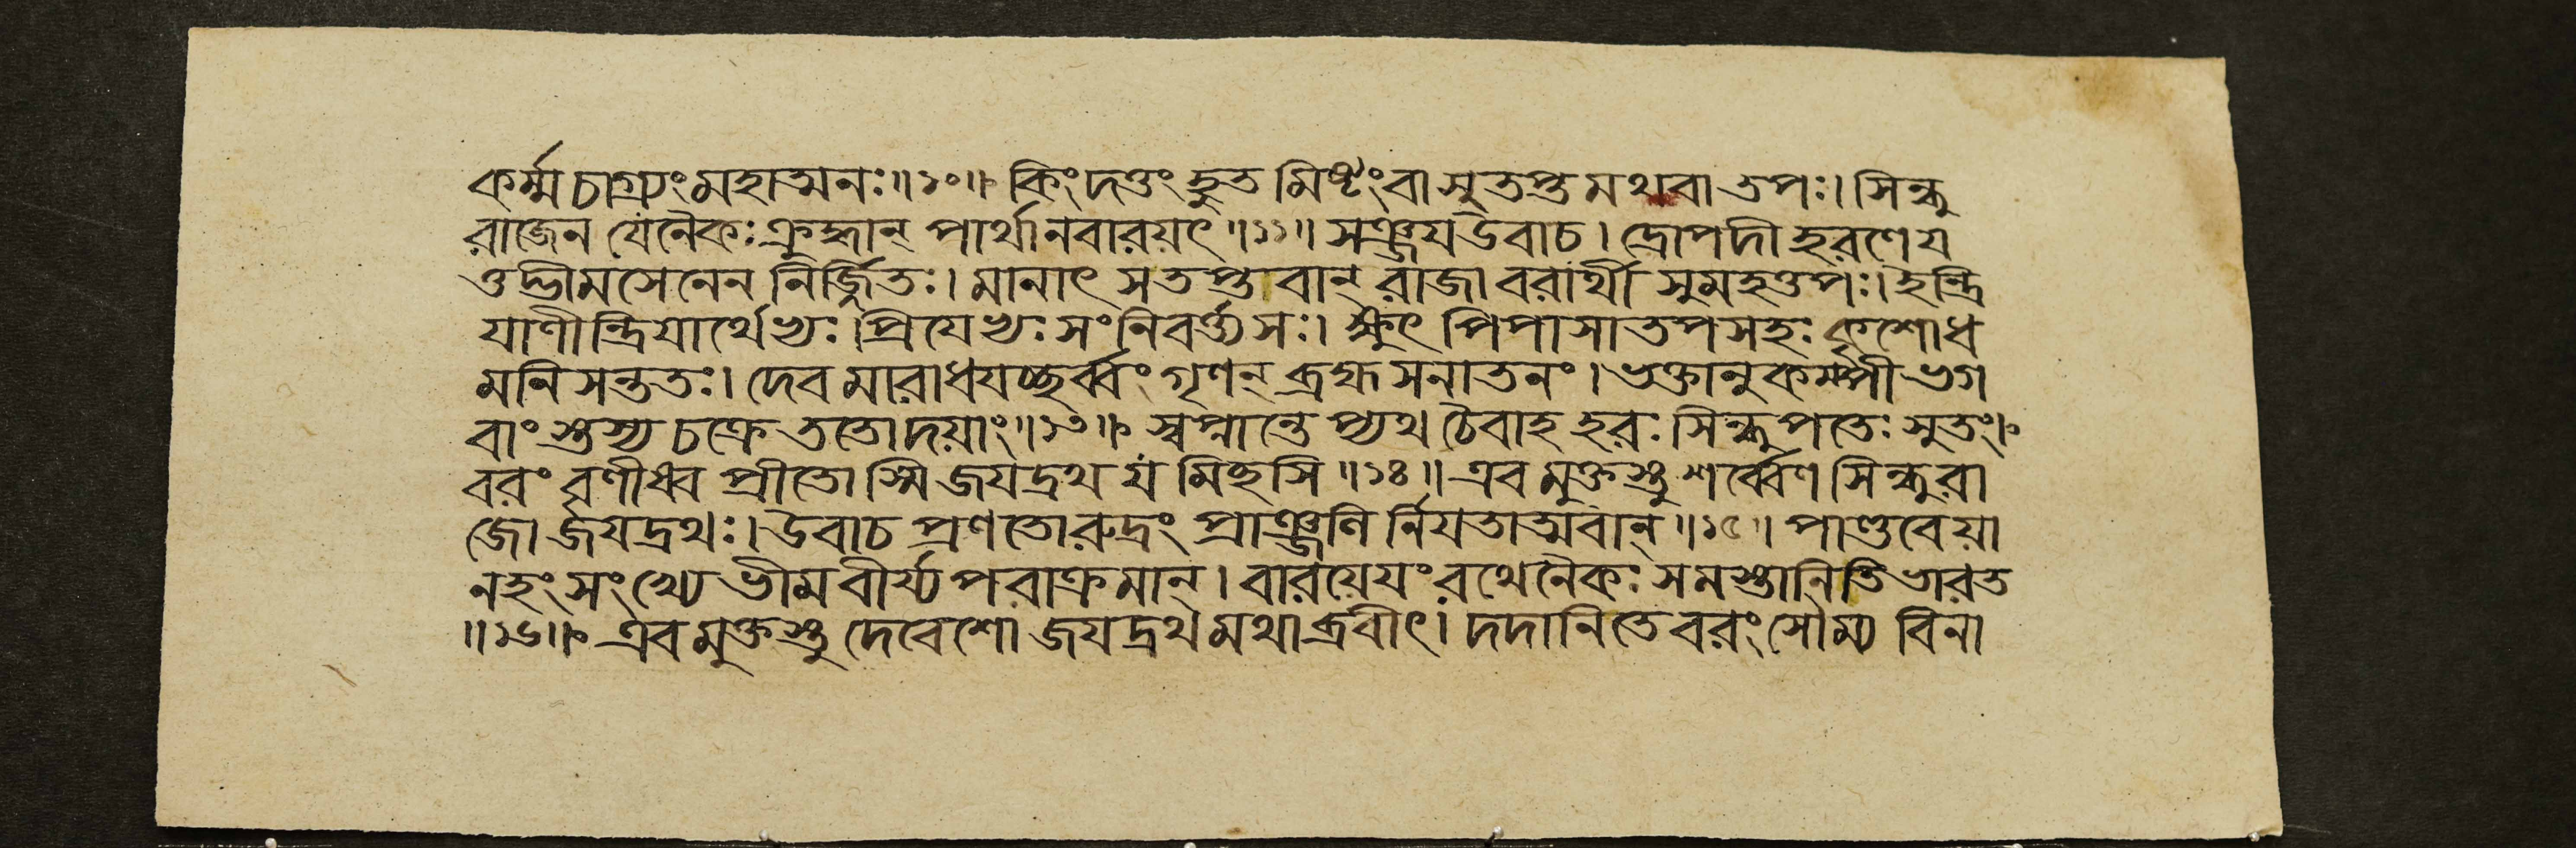 কর্ম্ম চাগ্র্যং মহাত্মনঃ॥১০॥ কিং দত্তং হুত মিষ্টং বা সুতপ্ত মথবা তপঃ। সিন্ধু
রাজেন যেনৈকঃ ক্রুদ্ধান্ পার্থানবারয়ৎ॥১১॥ সঞ্জয উবাচ। দ্রোপদী হরণে য
ত্তদ্ভীমসেনেন নির্জ্জিতঃ। মানাৎ স তপ্তবান্ রাজা বরার্থী সুমহত্তপঃ। ইন্দ্রি
যাণীন্দ্রিযার্থেভ্যঃ প্রিযেভ্যঃ সংনিবর্ত্ত্য সঃ। ক্ষুৎ পিপাসা তপ সহঃ কৃশো ধ
মনি সন্ততঃ। দেব মারাধযচ্ছর্ব্বং গৃণন্ ব্রহ্ম সনাতনং। ভক্তানুকম্পী ভগ
বাংস্তস্য চক্রে ততো দয়াং॥১৩॥ স্বপ্নান্তে প্যথ চৈবাহ হরঃ সিন্ধুপতেঃ সুতং।
বরং বৃণীধ্ব প্রীতোস্মি জযদ্রথ য মিছসি॥১৪॥ এব মুক্তস্তু শর্ব্বেণ সিন্ধুরা
জো র্জযদ্রথঃ। উবাচ প্রণতো রুদ্রং প্রাঞ্জলি র্নিযতাত্মবান্॥১৫॥ পাণ্ডবেয়া
নহং সংখ্যে ভীমবীর্য্য পরাক্রমান্। বারয়েযং রথেনৈকঃ সমস্তানিতি ভারত
॥১৬॥ এব মুক্তস্তু দেবেশো জযদ্রথ মথাব্রবীৎ। দদানি তে বরং সৌম্য বিনা